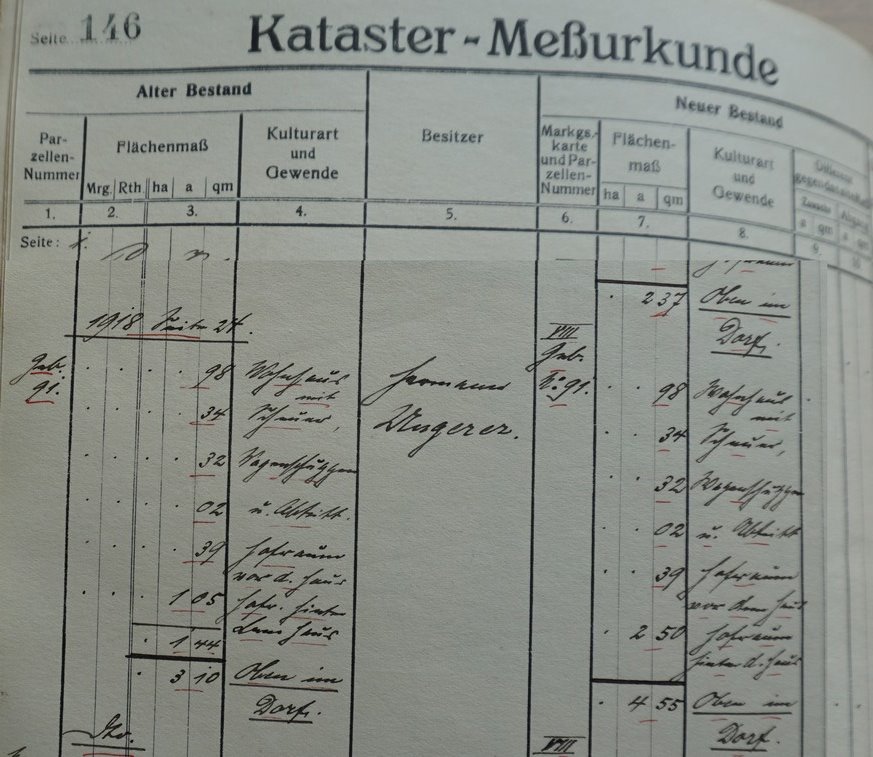 Seite 146
Kataster-Meßurkunde
Alter Bestand
Neuer Bestand
Par-
zellen-
Nummer
Flächenmaß
Mrg. Rth. ha a qm
Kulturart
und
Gewende
Besitzer
Markgs.-
karte
und Par-
zellen-
Nummer
Flächen-
maß
ha a qm
Kulturart
und
Gewende
1. 2. 3. 4. 5. 6. 7. 8. 9.
Seite: 1.
2 37 Oben im
Dorf.
1918 Seite 27.
Geb.
91.
98 Wohnhaus
mit
34 Scheuer,
32 Wagenschuppen
02 u. Abtritt.
39 Hofraum
vor d. Haus
1 05 Hofr. hinter
dem Haus
1 44
3 10 Oben im
Dorf.
Hermann
Ungerer.
VIII
Geb.
No. 91.
98 Wohnhaus
mit
34 Scheuer,
32 Wagenschuppen
02 u. Abtritt
39 Hofraum
vor dem Haus
2 50 Hofraum
hinter d. Haus
4 55 Oben im
Dorf.
VIII